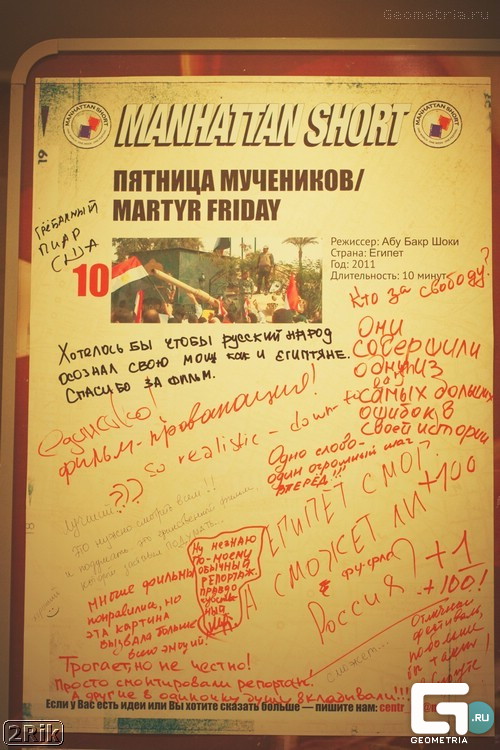 Geometria.ru
MANHATTAN SHORT
MANHATTAN SHORT
MANHATTAN SHORT
19
ПЯТНИЦА МУЧЕНИКОВ/
MARTYR FRIDAY
ГРЁБАННЫЙ
ПИАР
США
10
Режиссер: Абу Бакр Шоки
Страна: Египет
Год: 2011
Длительность: 10 минут
Кто за свободу?
Хотелось бы чтобы русский народ
осознал свою мощ как и египтяне.
Спасибо за фильм.
Они
совершили
одну из
самых больших
ошибок в
своей истории
однако!
фильм-провокация!
so realistic - down-to
Одно слово-
один огромный шаг
вперёд!!!
??
это нужно смотреть всем!!
Ну незнаю
По-моему
обычный
репортаж.
ЕГИПЕТ СМОГ.
А СМОЖЕТ ЛИ
Россия?
+100
+1
+100!
многие фильмы
понравились, но
эта картина
вызвала больше
всего эмоций!
Отличный
фестиваль,
побольше
бы таких
сможет...
Трогает, но не честно!
Просто смонтировали репортаж.
А другие в одиночку душу вкладывали!!!
Если у Вас есть идеи или Вы хотите сказать больше — пишите нам: centr_
2Rik
G .RU
GEOMETRIA